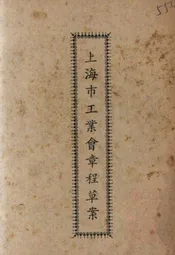 上海市工業會章程草案